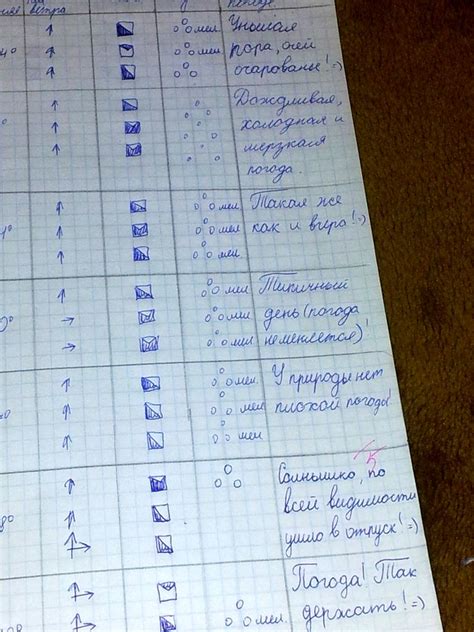 ветра
4°
мел
Унылая
мел
пора, очей
очарованье! =)
Дождливая,
холодная и
мерзкая
погода.
мел
Такая же
мел
как и вчера! =)
мел
мел
Типичный
мел
день (погода
мел
неменяется)!
мел
У природы нет
мел
плохой погоды!
мел
Солнышко, по
всей видимости
ушло в отпуск! =)
8°
Погода! Так
мел
держать! =)